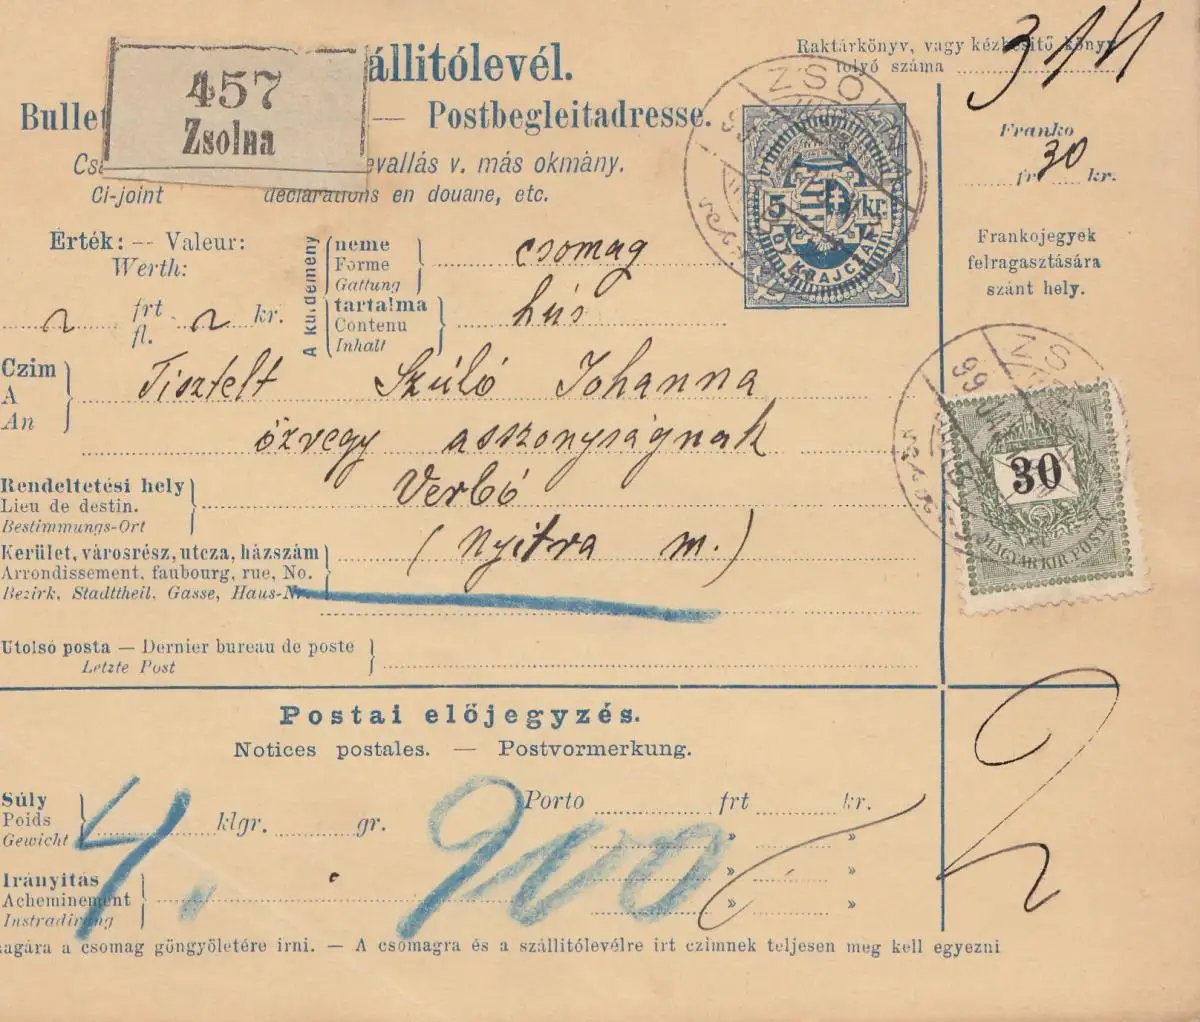 457
Zsolna
állitólevél.
Bulle — Postbegleitadresse.
evallás v. más okmány.
Ci-joint déclarations en douane, etc.
Raktárkönyv, vagy kézbesitő könyv
folyó száma
Franko
fr 30 kr.
Frankojegyek
felragasztására
szánt hely.
ZSOLNA
5 kr.
ÖT KRAJCZÁR
Érték: -- Valeur:
Werth:
frt kr.
fl.
A küldemény
neme
Forme
Gattung
csomag
tartalma
Contenu
Inhalt
hús
Czim
A
An
Tisztelt Szúló Johanna
özvegy asszonyságnak
Rendeltetési hely
Lieu de destin.
Bestimmungs-Ort
Verbó
Kerület, városrész, utcza, házszám
Arrondissement, faubourg, rue, No.
Bezirk, Stadttheil, Gasse, Haus-Nr.
(Nyitra m.)
99
30
MAGYAR KIR. POSTA
Utolsó posta — Dernier bureau de poste
Letzte Post
Postai előjegyzés.
Notices postales. — Postvormerkung.
Súly
Poids
Gewicht
4, klgr. 900 gr.
Porto frt kr.
" "
" "
" "
Irányitás
Acheminement
Instradirung
2
agára a csomag göngyöletére irni. — A csomagra és a szállitólevélre irt czimnek teljesen meg kell egyezni